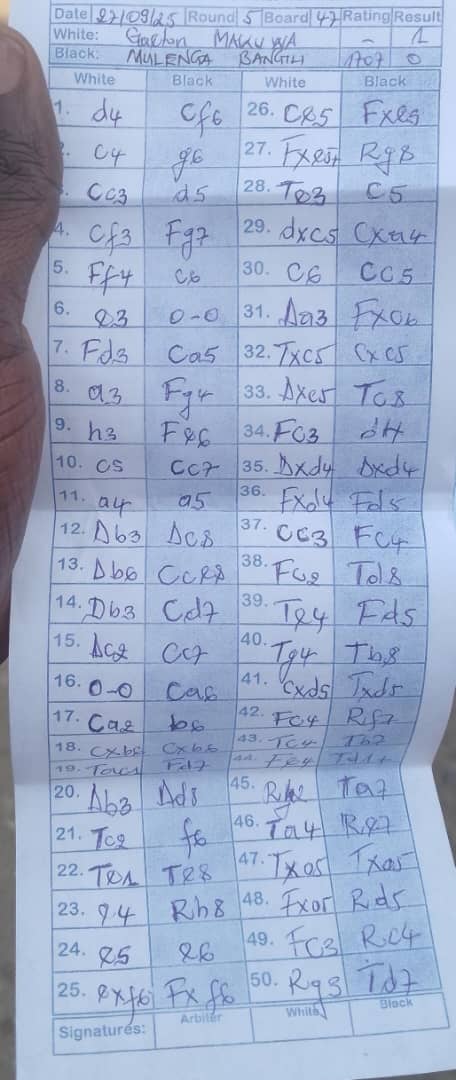 Date 27/09/25 Round 5 Board 47 Rating Result
White: Gaston MAKUWA - 1
Black: MULENGA BANGILI 1707 0
White Black White Black
1. d4 Cf6 26. Ce5 Fxe5
c4 g6 27. Fxe5+ Rg8
Cc3 d5 28. Te3 c5
4. Cf3 Fg7 29. dxc5 Cxa4
5. Ff4 c6 30. c6 Cc5
6. e3 0-0 31. Da3
7. Fd3 Ca5 32. Txc5 Cxc5
8. a3 Fg4 33. Dxc5 Tc8
9. h3 Fe6 34. Fc3 d4
10. c5 Cc7 35. Dxd4 Dxd4
11. a4 a5 36. Fxd4 Fd5
12. Db3 Dc8 37. Cc3 Fc4
13. Db6 Cce8 38. Fc2 Td8
14. Db3 Cd7 39. Te4 Fd5
15. Dc2 Cc7 40. Tg4 Tb8
16. 0-0 Ca6 41. Cxd5 Txd5
17. Ca2 b6 42. Fc4 Rf7
18. Cxb6 Cxb6 43. Tc4 Tb7
19. Tac1 Fd7 44. Fe4 Td1+
20. Db3 Dd8 45. Rh2 Ta7
21. Tc2 f6 46. Ta4 Re7
22. Te1 Te8 47. Txa5 Txa5
23. e4 Rh8 48. Fxa5 Rd5
24. e5 e6 49. Fc3 Rc4
25. exf6 Fxf6 50. Rg3 Td7
Signatures: Arbiter White Black